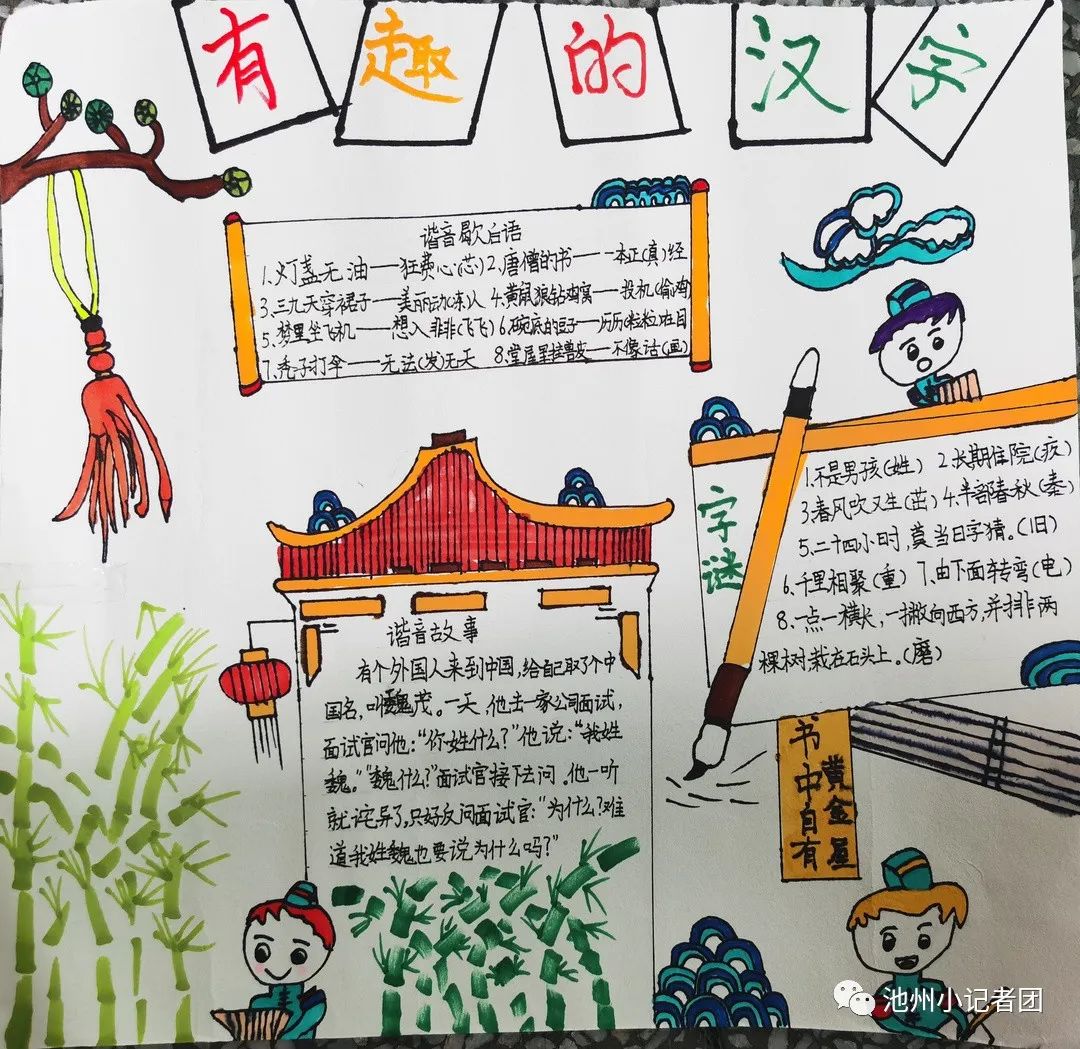 有趣的汉字
谐音歇后语
1.灯盏无油——狂费心(芯) 2.唐僧的书——一本正(真)经
3.三九天穿裙子——美丽动(冻)人 4.黄鼠狼钻鸡窝——投机(偷鸡)
5.梦里坐飞机——想入非非(飞飞) 6.碗底的豆子——历历(粒粒)在目
7.秃子打伞——无法(发)无天 8.堂屋里挂兽皮——不像话(画)
字谜
1.不是男孩(姓) 2.长期住院(疚)
3.春风吹又生(茁) 4.半部春秋(秦)
5.二十四小时,莫当日字猜。(旧)
6.千里相聚(重) 7.由下面转弯(电)
8.一点一横长,一撇向西方,并排两
棵树,栽在石头上。(磨)
谐音故事
有个外国人来到中国,给自己取了个中
国名,叫魏茂。一天,他去一家公司面试,
面试官问他:“你姓什么?”他说:“我姓
魏。”“魏什么?”面试官接下去问。他一听
就诧异了,只好反问面试官:“为什么?难
道我姓魏也要说为什么吗?”
书中自有
黄金屋
池州小记者团